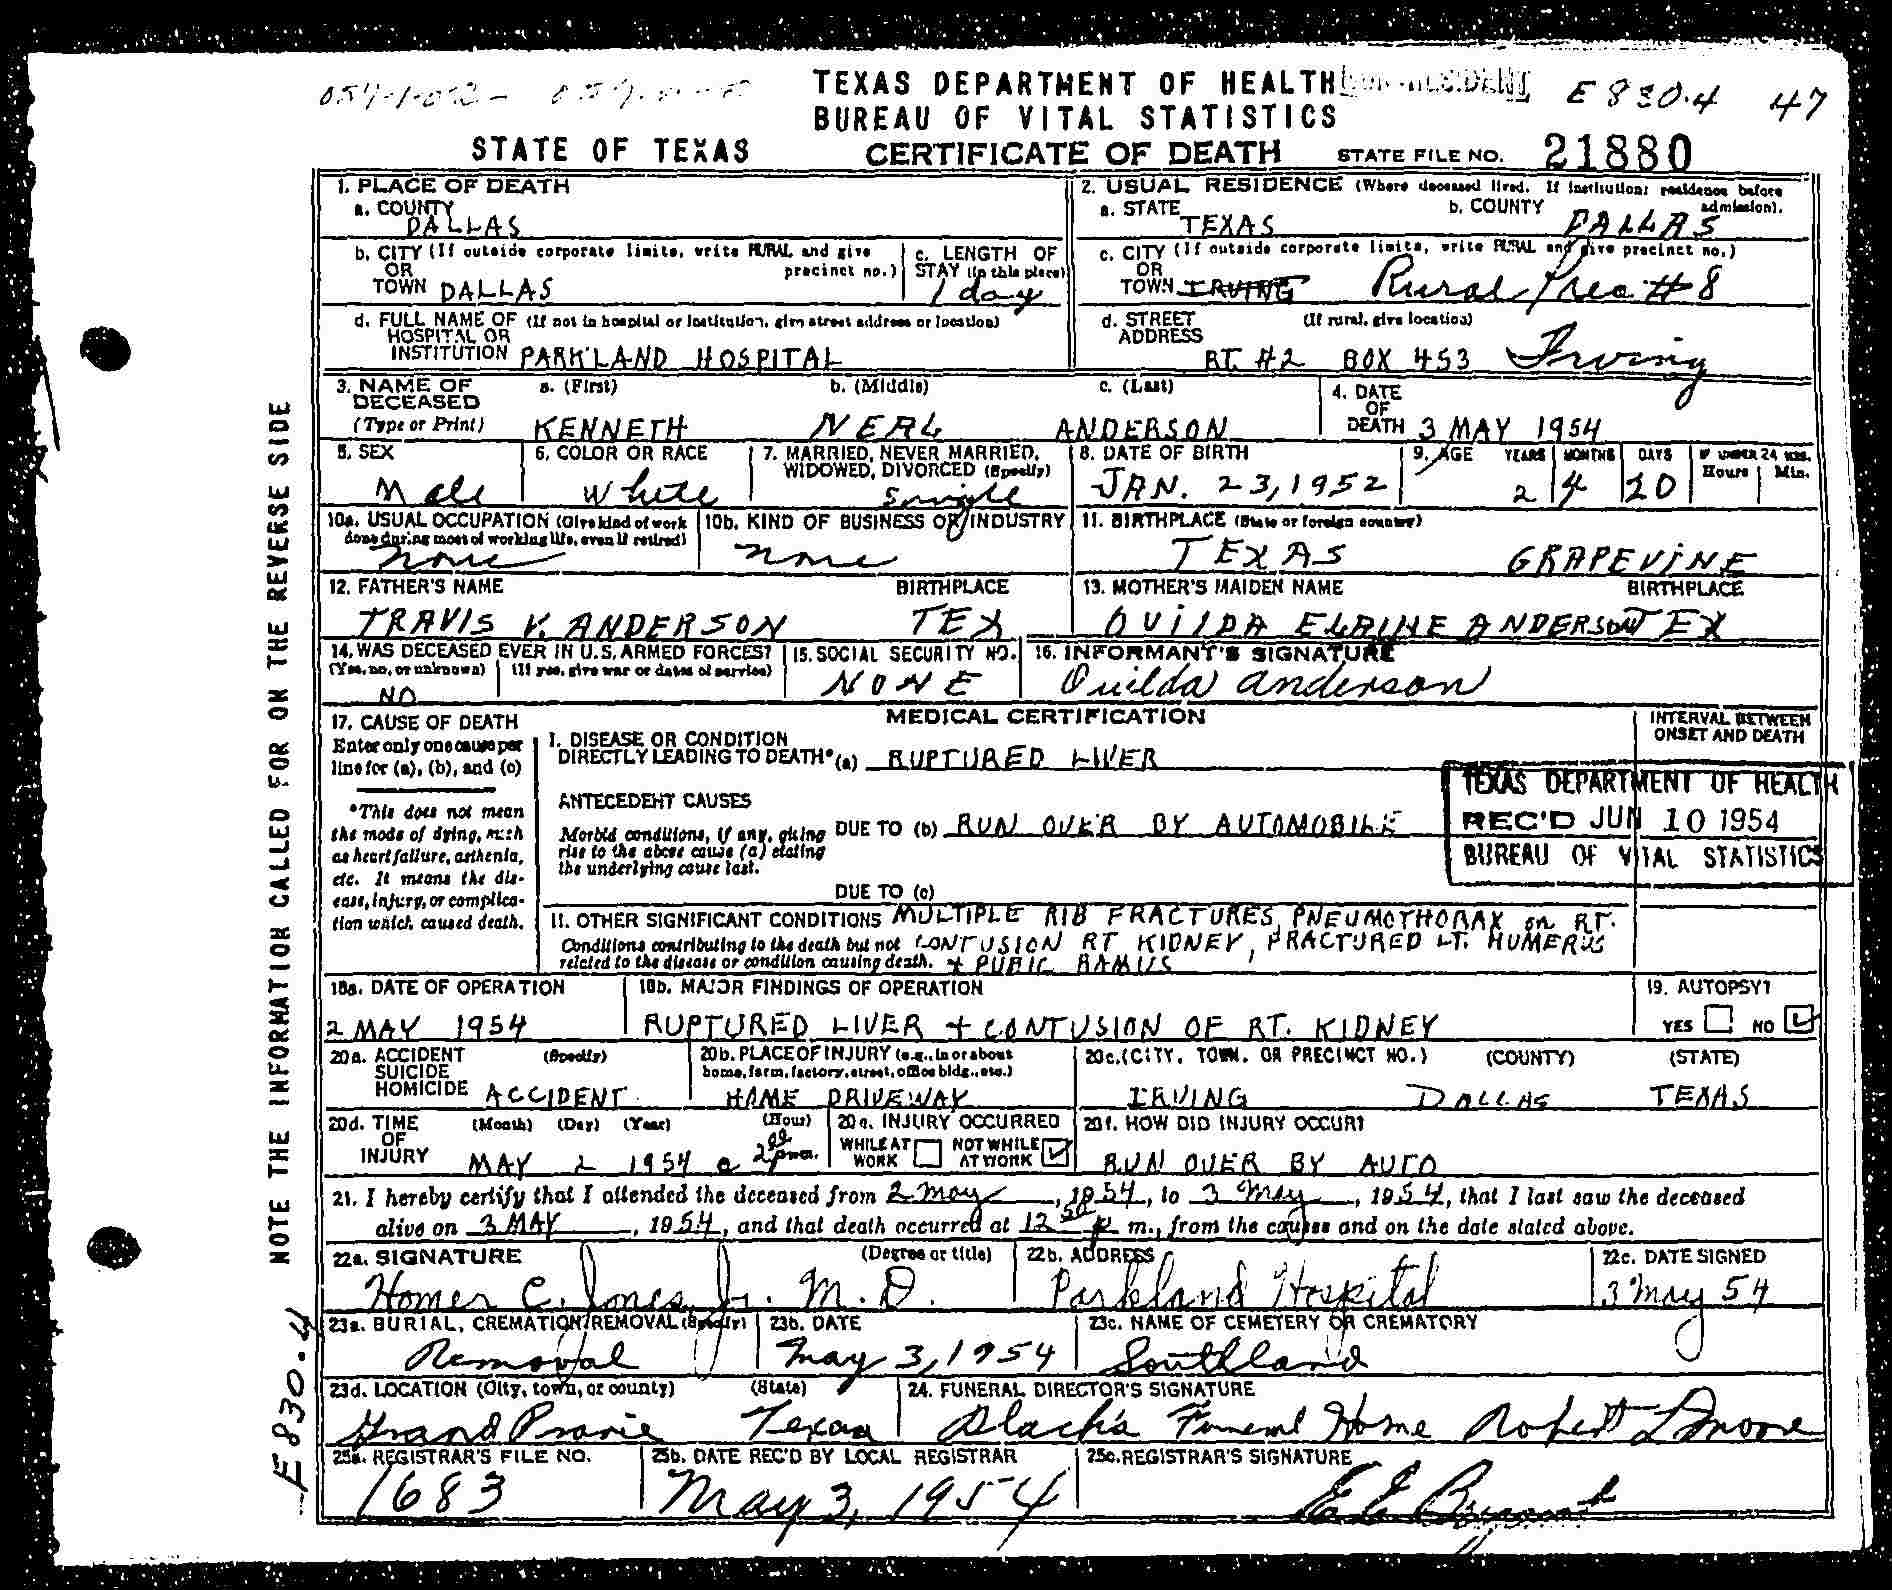 TEXAS DEPARTMENT OF HEALTH E 830.4 47
BUREAU OF VITAL STATISTICS
STATE OF TEXAS CERTIFICATE OF DEATH STATE FILE NO. 21880
NOTE THE INFORMATION CALLED FOR ON THE REVERSE SIDE
E 830.4
1. PLACE OF DEATH
a. COUNTY
DALLAS
2. USUAL RESIDENCE (Where deceased lived. If institution: residence before admission).
a. STATE TEXAS b. COUNTY DALLAS
b. CITY (If outside corporate limits, write RURAL and give precinct no.)
OR
TOWN DALLAS
c. LENGTH OF STAY (in this place)
1 day
c. CITY (If outside corporate limits, write RURAL and give precinct no.)
OR
TOWN IRVING Rural Prec. #8
d. FULL NAME OF (If not in hospital or institution, give street address or location)
HOSPITAL OR
INSTITUTION PARKLAND HOSPITAL
d. STREET (If rural, give location)
ADDRESS RT. #2 BOX 453 Irving
3. NAME OF DECEASED (Type or Print)
a. (First) b. (Middle) c. (Last)
KENNETH NEAL ANDERSON
4. DATE OF DEATH 3 MAY 1954
5. SEX
Male
6. COLOR OR RACE
White
7. MARRIED, NEVER MARRIED, WIDOWED, DIVORCED (Specify)
Single
8. DATE OF BIRTH
JAN. 23, 1952
9. AGE YEARS MONTHS DAYS IF UNDER 24 HRS. Hours Min.
2 4 10
10a. USUAL OCCUPATION (Give kind of work done during most of working life, even if retired)
None
10b. KIND OF BUSINESS OR INDUSTRY
None
11. BIRTHPLACE (State or foreign country)
TEXAS GRAPEVINE
12. FATHER'S NAME BIRTHPLACE
TRAVIS V. ANDERSON TEX
13. MOTHER'S MAIDEN NAME BIRTHPLACE
OUILDA ELAINE ANDERSON TEX
14. WAS DECEASED EVER IN U.S. ARMED FORCES?
(Yes, no, or unknown) (If yes, give war or dates of service)
NO
15. SOCIAL SECURITY NO.
NONE
16. INFORMANT'S SIGNATURE
Ouilda Anderson
MEDICAL CERTIFICATION
17. CAUSE OF DEATH
Enter only one cause per line for (a), (b), and (c)
*This does not mean the mode of dying, such as heart failure, asthenia, etc. It means the disease, injury, or complication which caused death.
INTERVAL BETWEEN ONSET AND DEATH
I. DISEASE OR CONDITION
DIRECTLY LEADING TO DEATH* (a) RUPTURED LIVER
ANTECEDENT CAUSES
Morbid conditions, if any, giving rise to the above cause (a) stating the underlying cause last.
DUE TO (b) RUN OVER BY AUTOMOBILE
DUE TO (c)
TEXAS DEPARTMENT OF HEALTH
REC'D JUN 10 1954
BUREAU OF VITAL STATISTICS
II. OTHER SIGNIFICANT CONDITIONS MULTIPLE RIB FRACTURES, PNEUMOTHORAX on RT.
Conditions contributing to the death but not CONTUSION RT KIDNEY, FRACTURED LT. HUMERUS
related to the disease or condition causing death. + PUBIC RAMUS
18a. DATE OF OPERATION
2 MAY 1954
18b. MAJOR FINDINGS OF OPERATION
RUPTURED LIVER + CONTUSION OF RT. KIDNEY
19. AUTOPSY?
YES NO
20a. ACCIDENT (Specify)
SUICIDE
HOMICIDE ACCIDENT
20b. PLACE OF INJURY (e.g., in or about home, farm, factory, street, office bldg., etc.)
HOME DRIVEWAY
20c. (CITY, TOWN, OR PRECINCT NO.) (COUNTY) (STATE)
IRVING DALLAS TEXAS
20d. TIME OF INJURY (Month) (Day) (Year) (Hour)
MAY 2 1954 @ 2:00 p.m.
20e. INJURY OCCURRED
WHILE AT WORK NOT WHILE AT WORK
20f. HOW DID INJURY OCCUR?
RUN OVER BY AUTO
21. I hereby certify that I attended the deceased from 2 May, 1954, to 3 May, 1954, that I last saw the deceased
alive on 3 MAY, 1954, and that death occurred at 12 50 p m., from the causes and on the date stated above.
22a. SIGNATURE (Degree or title)
Homer C. Jones, Jr. M.D.
22b. ADDRESS
Parkland Hospital
22c. DATE SIGNED
3 May 54
23a. BURIAL, CREMATION, REMOVAL (Specify)
Removal
23b. DATE
May 3, 1954
23c. NAME OF CEMETERY OR CREMATORY
Southland
23d. LOCATION (City, town, or county) (State)
Grand Prairie Texas
24. FUNERAL DIRECTOR'S SIGNATURE
Funeral Home Robert L Moore
25a. REGISTRAR'S FILE NO.
1683
25b. DATE REC'D BY LOCAL REGISTRAR
May 3, 1954
25c. REGISTRAR'S SIGNATURE
E E Bryant